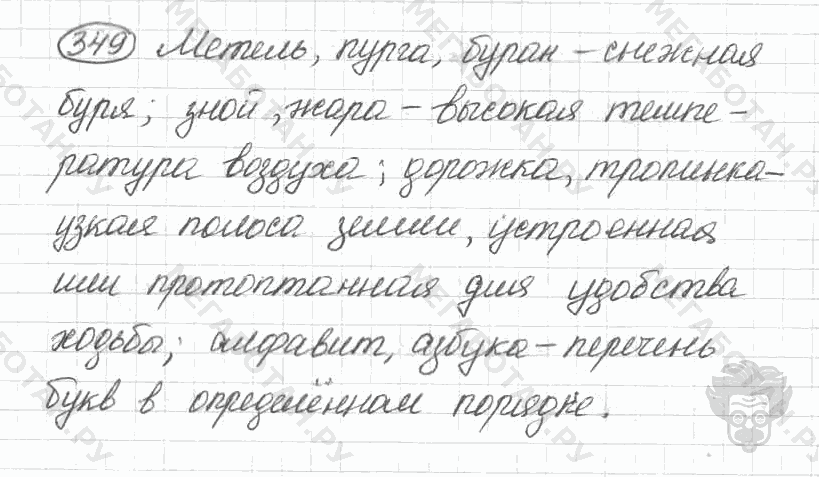 349 Метель, пурга, буран – снежная
буря; зной, жара – высокая темпе-
ратура воздуха; дорожка, тропинка-
узкая полоса земли, устроенная
или протоптанная для удобства
ходьбы; алфавит, азбука – перечень
букв в определённом порядке.